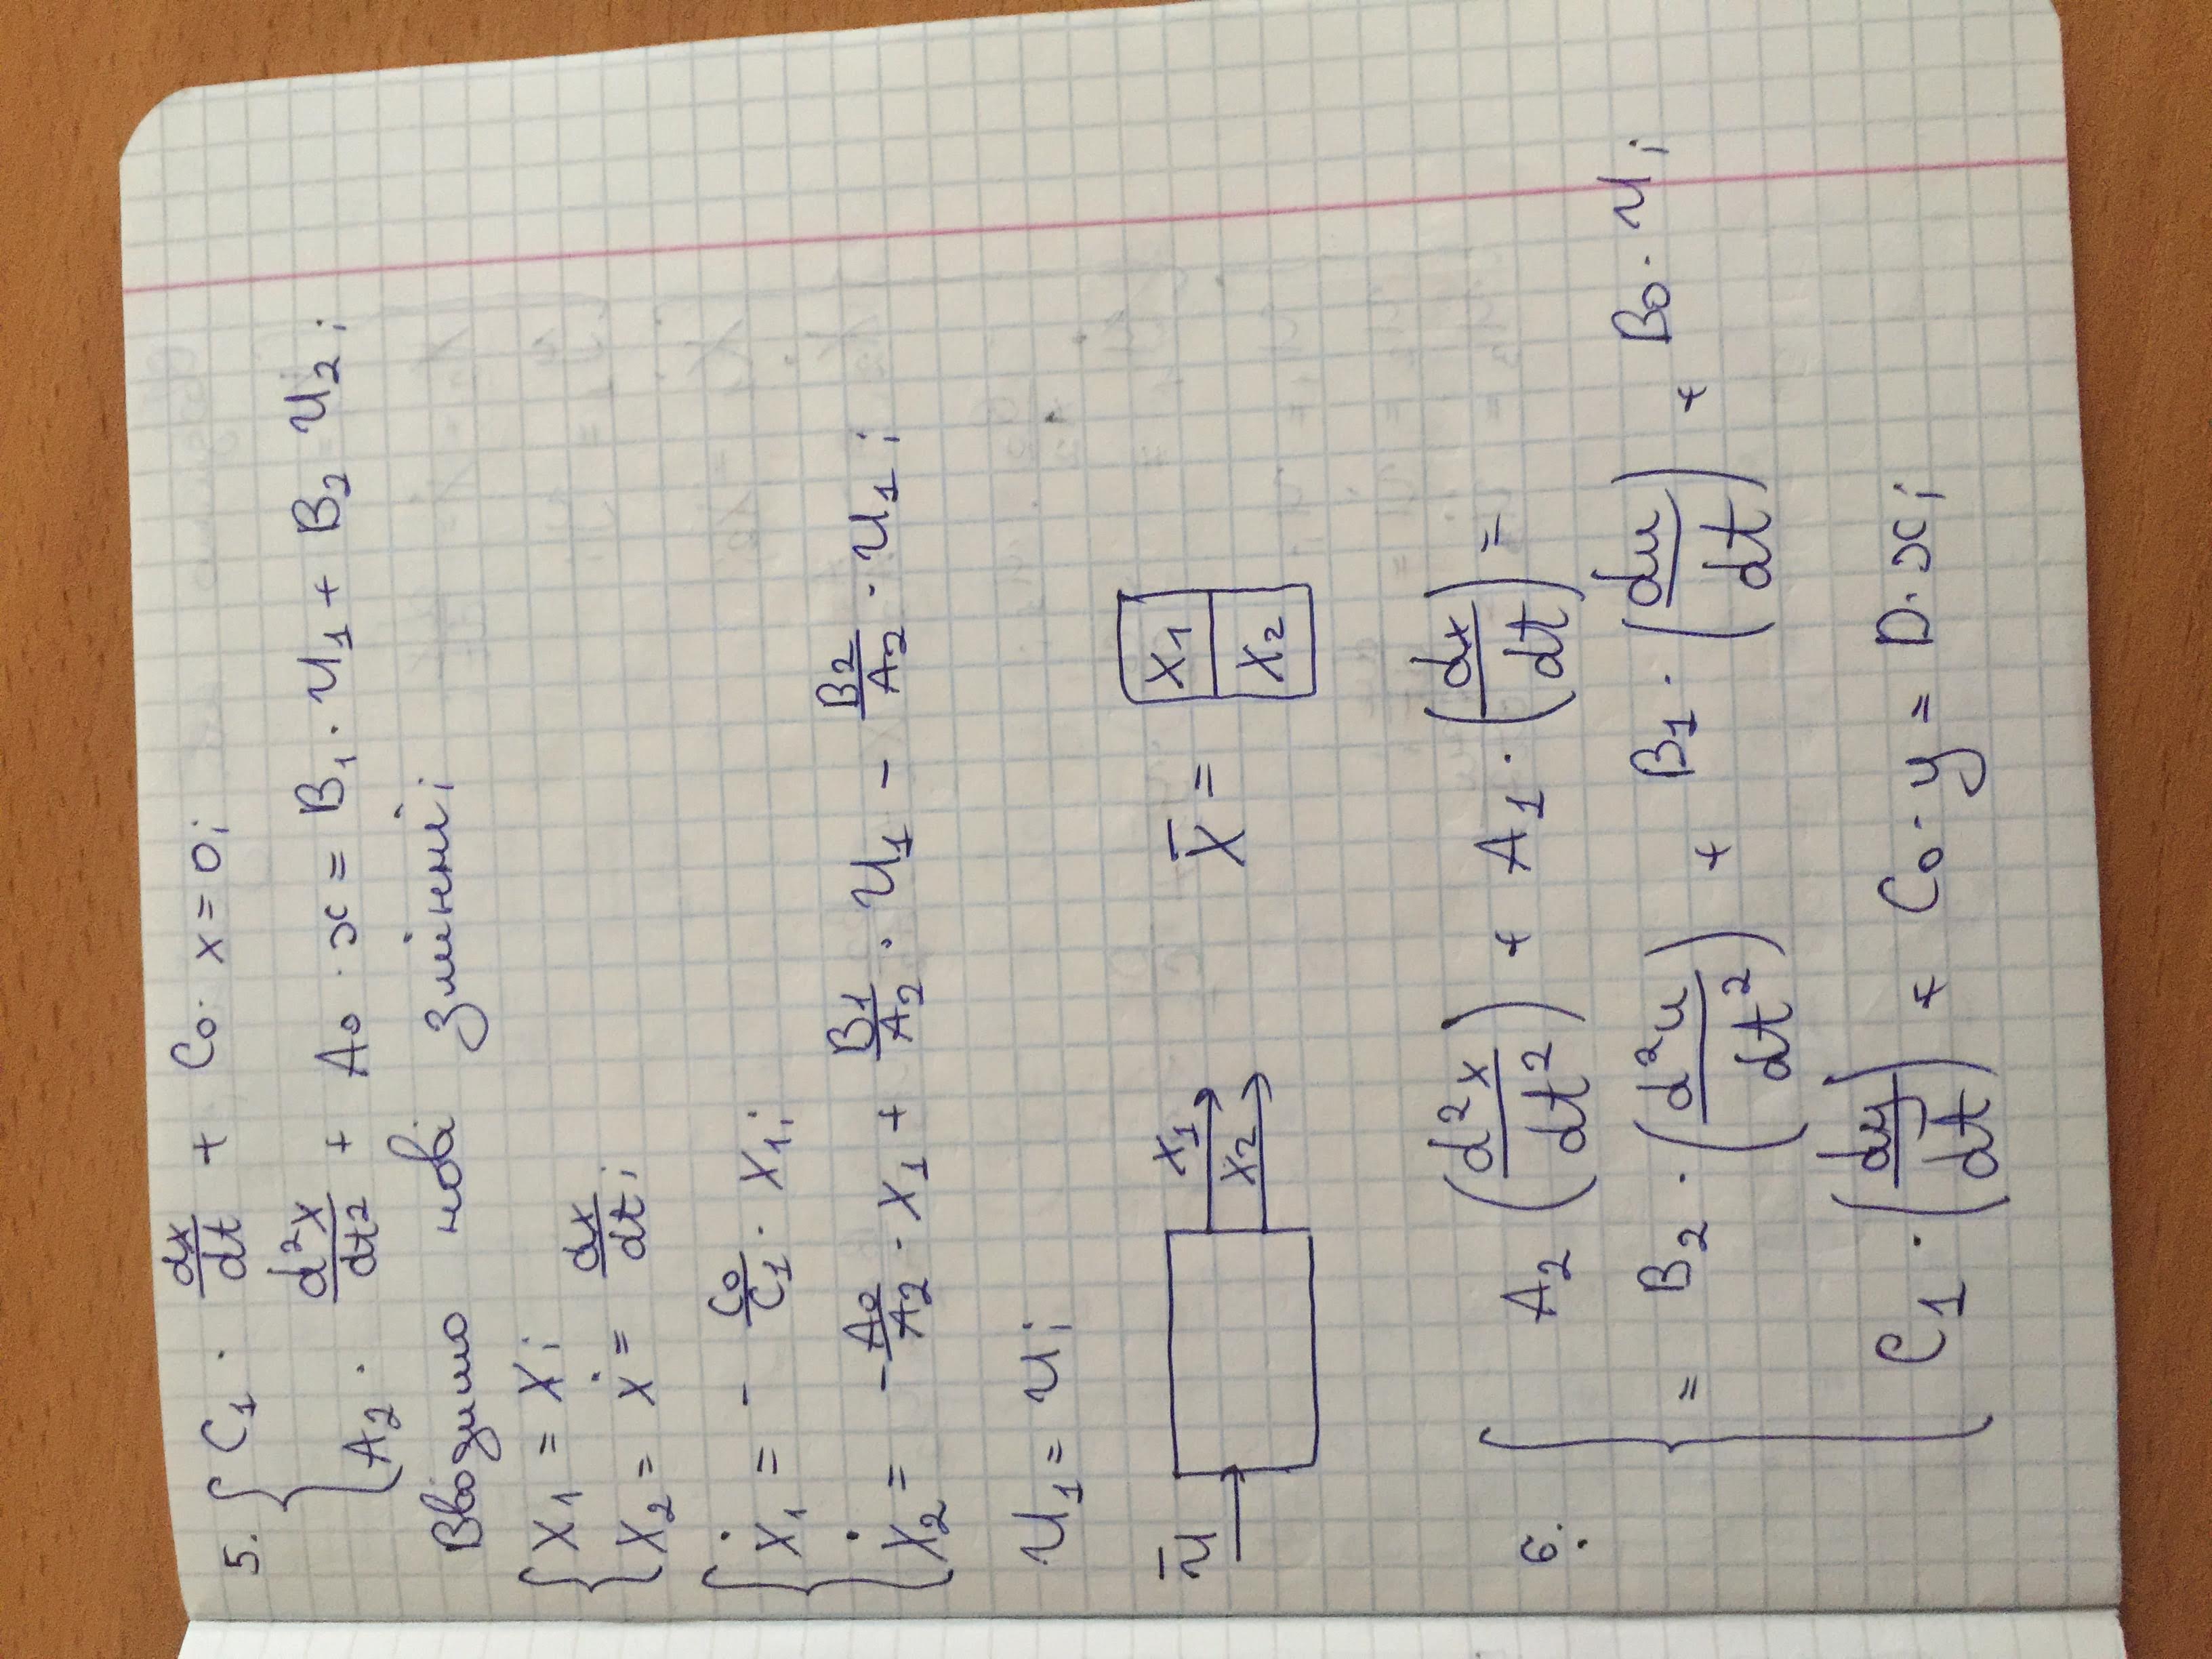 5. { C₁ · dx/dt + C₀ · x = 0;
A₂ · d²x/dt² + A₀ · x = B₁ · U₁ + B₂ U₂;
Вводимо нові змінні;
{ X₁ = X;
X₂ = ẋ = dx/dt;
{ Ẋ₁ = - C₀/C₁ · X₁;
Ẋ₂ = - A₀/A₂ · X₁ + B₁/A₂ · U₁ - B₂/A₂ · U₁;
U₁ = U;
Ū X₁ X₂ X̄ = X₁ X₂
6. { A₂ (d²x/dt²) + A₁ · (dx/dt) =
= B₂ · (d²u/dt²) + B₁ · (du/dt) + B₀ · U;
C₁ · (dy/dt) + C₀ · y = D · x;